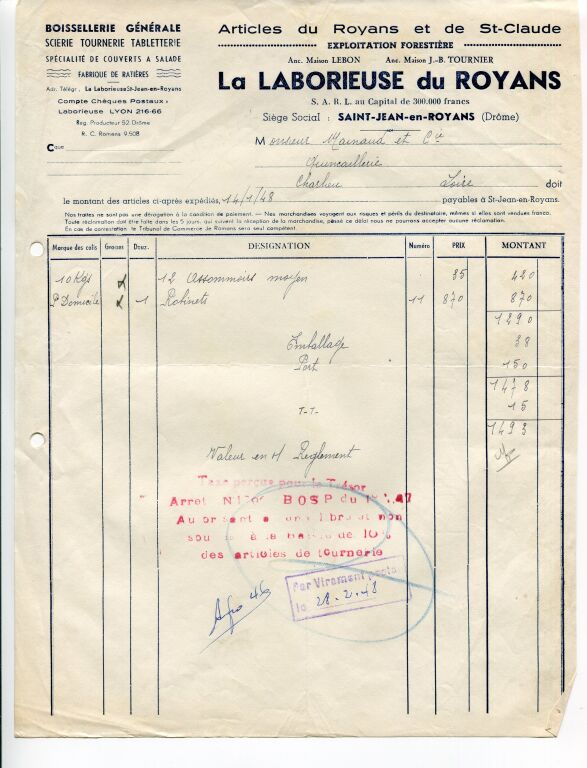 BOISSELLERIE GÉNÉRALE
SCIERIE TOURNERIE TABLETTERIE
SPÉCIALITÉ DE COUVERTS A SALADE
FABRIQUE DE RATIÈRES
Adr. Télégr. : La Laborieuse St-Jean-en-Royans
Compte Chèques Postaux :
Laborieuse LYON 216-66
Reg. Producteur 52 Drôme
R. C. Romans 9.508
C
Articles du Royans et de St-Claude
EXPLOITATION FORESTIÈRE
Anc. Maison LEBON Anc. Maison J.-B. TOURNIER
La LABORIEUSE du ROYANS
S. A. R. L. au Capital de 300.000 francs
Siège Social : SAINT-JEAN-en-ROYANS (Drôme)
Monsieur Mainaud et Cie
Quincaillerie
Charlieu Loire doit
le montant des articles ci-après expédiés, 14/1/48 payables à St-Jean-en-Royans.
Nos traites ne sont pas une dérogation à la condition de paiement. — Nos marchandises voyagent aux risques et périls du destinataire, mêmes si elles sont vendues franco.
Toute réclamation doit être faite dans les 5 jours, qui suivent la réception des marchandises, passé ce délai nous ne pourrons accepter aucune réclamation.
En cas de contestation le Tribunal de Commerce de Romans sera seul compétent.
Marque des colis Grosses Douz. DESIGNATION Numéro PRIX MONTANT
10 Kgs 12 Assommoirs moyen 35 420
Domicile 1 Robinets 11 870 870
1290
Emballage 38
Port 150
1478
T-T- 15
1493
Valeur en Règlement
Taxe perçue pour le Trésor
Arret BOSP du 47
des articles de tournerie
Par Virement postal
le 28.2.48